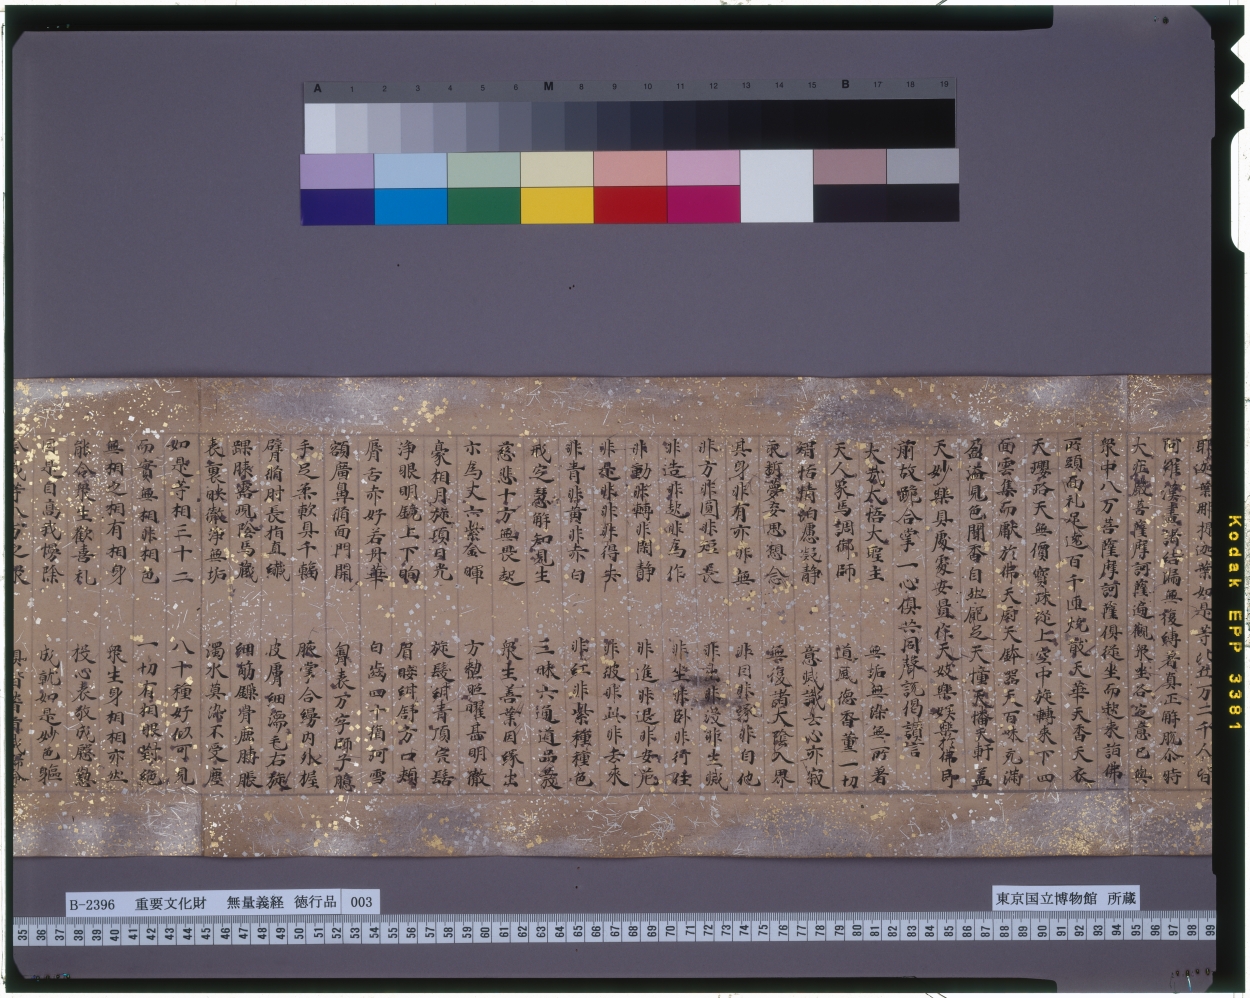 A 1 2 3 4 5 6 M 8 9 10 11 12 13 14 15 B 17 18 19
大莊嚴菩薩摩訶薩遍觀眾坐各定意已與
眾中八万菩薩摩訶薩俱從坐而起来詣佛
所頭面礼足遶百千迊燒散天華天香天衣
天瓔珞天無價寳珠從上空中旋轉来下四
面雲集而獻於佛天厨天鉢器天百味充滿
盈溢見色聞香自然飽足天幢天幡天軒蓋
天妙樂具處處安置作天妓樂娯樂於佛即
前胡跪合掌一心俱共同聲說偈讚言
大哉大悟大聖主 無垢無染無所著
天人象馬調御師 道風德香薰一切
智恬情怕慮凝静 意滅識亡心亦寂
永断夢妄思想念 無復諸大陰入界
其身非有亦非無 非因非緣非自他
非方非圓非短長 非出非没非生滅
非造非起非為作 非坐非卧非行住
非動非轉非閑静 非進非退非安危
非是非非非得失 非彼非此非去来
非青非黄非赤白 非紅非紫種種色
戒定慧解知見生 三昧六通道品發
慈悲十方無畏起 眾生善業因緣出
示為丈六紫金暉 方整照曜甚明徹
豪相月旋項日光 旋髮紺青頂宍髻
浄眼明鏡上下眴 眉睫紺舒方口頬
脣舌亦好若丹華 白齒四十猶珂雪
額廣鼻脩面門開 胷表万字師子臆
手足柔軟具千輻 腋掌合縵内外握
臂脩肘長指直纎 皮膚細濡毛右旋
踝膝露現陰馬藏 細筋鏁骨鹿膊脹
表裏映徹浄無垢 濁水莫染不受塵
如是等相三十二 八十種好似可見
而實無相非相色 一切有相眼對絶
無相之相有相身 眾生身相相亦然
能令眾生歡喜礼 投心表敬成慇懃
因是自高我慢除 成就如是妙色軀
B-2396 重要文化財 無量義経 徳行品 003
東京国立博物館 所蔵
35 36 37 38 39 40 41 42 43 44 45 46 47 48 49 50 51 52 53 54 55 56 57 58 59 60 61 62 63 64 65 66 67 68 69 70 71 72 73 74 75 76 77 78 79 80 81 82 83 84 85 86 87 88 89 90 91 92 93 94 95 96 97 98 99
Kodak EPP 3381